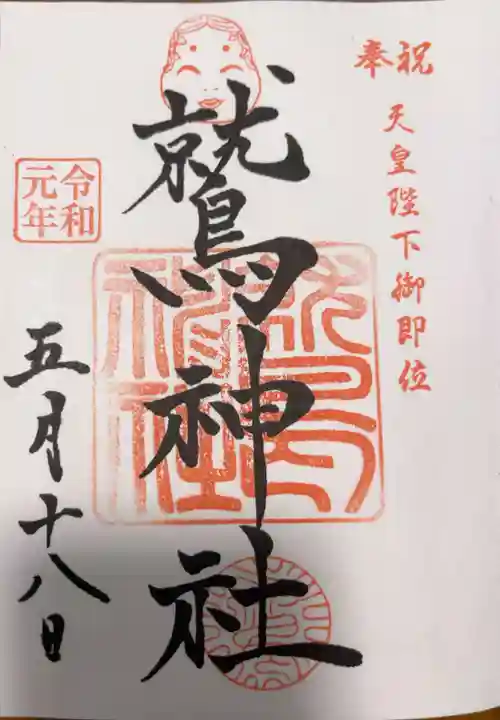 奉祝
天皇陛下御即位
鷲神社
令和
元年
五月十八日
鷲神社